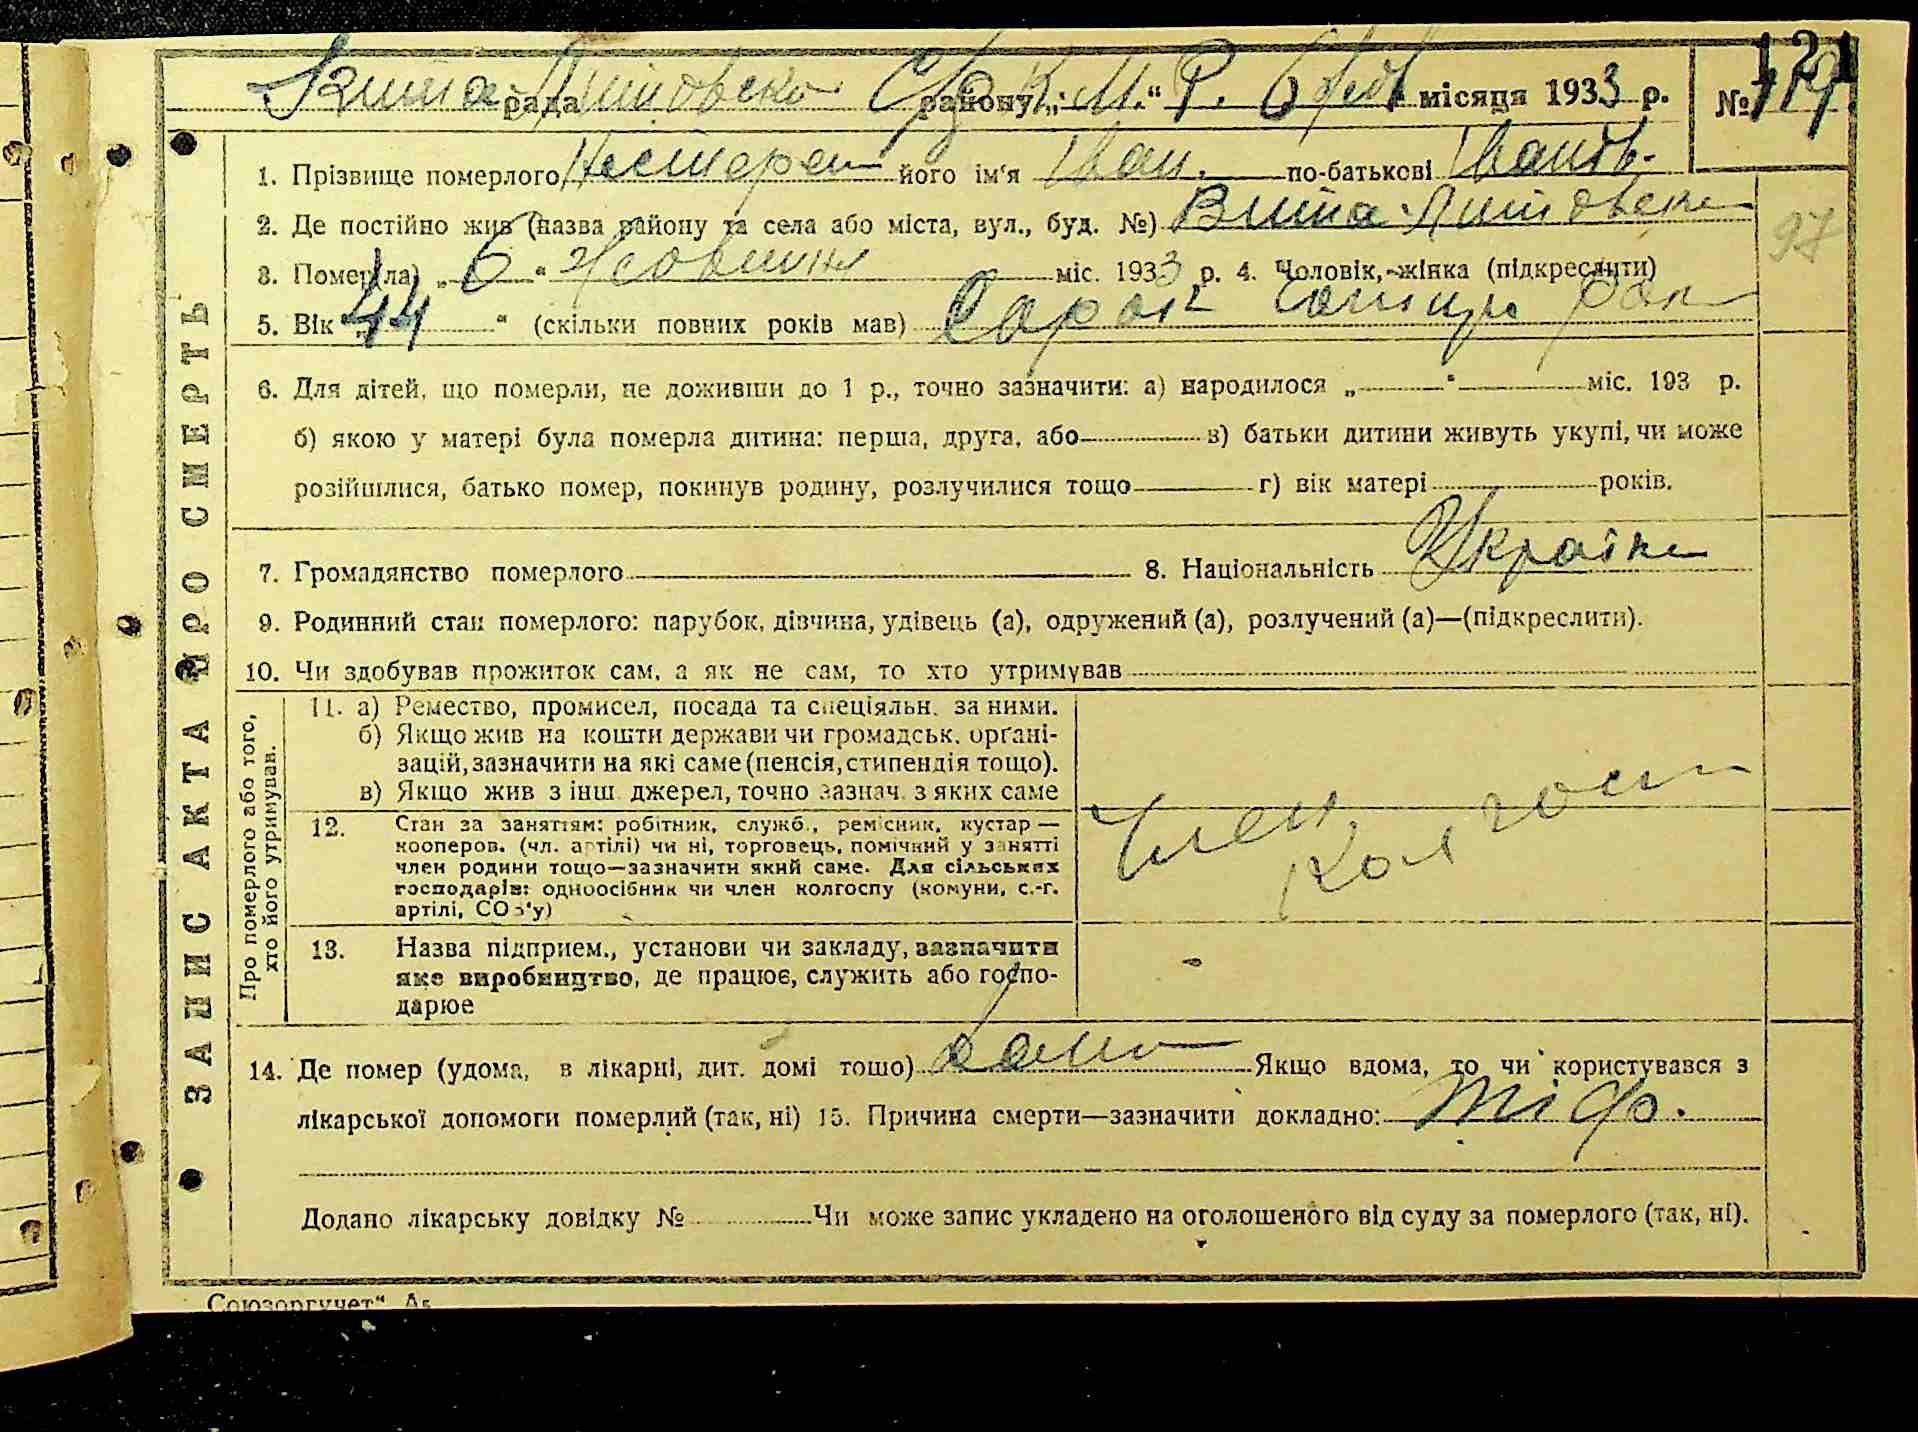 121
Вита Литовська рада району „К. М.“ Р. 6 місяця 1933 р. № 119.
ЗАПИС АКТА ПРО СМЕРТЬ
1. Прізвище померлого Нестерен його ім'я Іван. по-батькові Іванов.
2. Де постійно жив (назва району та села або міста, вул., буд. №) Вита-Литовська
97
3. Помер(ла) „6“ Жовтня міс. 1933 р. 4. Чоловік, жінка (підкреслити)
5. Вік „44“ (скільки повних років мав) Сорок чотири роки
6. Для дітей, що померли, не доживши до 1 р., точно зазначити: а) народилося „ “ міс. 193 р.
б) якою у матері була померла дитина: перша, друга, або в) батьки дитини живуть укупі, чи може
розійшлися, батько помер, покинув родину, розлучилися тощо г) вік матері років.
7. Громадянство померлого 8. Національність Україн
9. Родинний стан померлого: парубок, дівчина, удівець (а), одружений (а), розлучений (а)—(підкреслити).
10. Чи здобував прожиток сам, а як не сам, то хто утримував
Про померлого або того,
хто його утримував.
11. а) Ремество, промисел, посада та спеціяльн. за ними.
б) Якщо жив на кошти держави чи громадськ. орґані-
зацій, зазначити на які саме (пенсія, стипендія тощо).
в) Якщо жив з інш. джерел, точно зазнач. з яких саме
12. Стан за заняттям: робітник, служб., ремісник, кустар —
кооперов. (чл. артілі) чи ні, торговець, помічний у занятті
член родини тощо—зазначити який саме. Для сільських
господарів: одноосібник чи член колгоспу (комуни, с.-г.
артілі, СОЗ'у)
Член
колгосп
13. Назва підприєм., установи чи закладу, зазначити
яке виробництво, де працює, служить або госпо-
дарює
14. Де помер (удома, в лікарні, дит. домі тощо) дома Якщо вдома, то чи користувався з
лікарської допомоги померлий (так, ні) 15. Причина смерти—зазначити докладно: тіф.
Додано лікарську довідку № Чи може запис укладено на оголошеного від суду за померлого (так, ні).
Союзоргучет“ А5